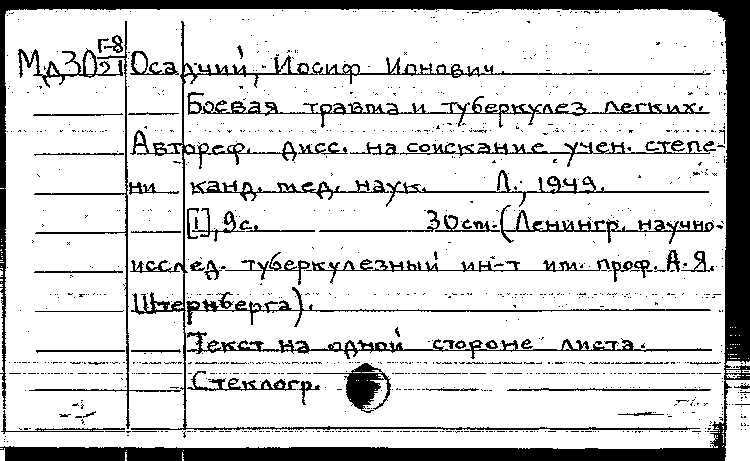 Мд30 Г-8/21 Осадчий, Иосиф Ионович.
Боевая травма и туберкулез легких.
Автореф. дисс. на соискание учен. степе-
ни канд. мед. наук. Л., 1949.
[1], 9с. 30см. (Ленингр. научно-
исслед. туберкулезный ин-т им. проф. А.Я.
Штернберга).
Текст на одной стороне листа.
Стеклогр.